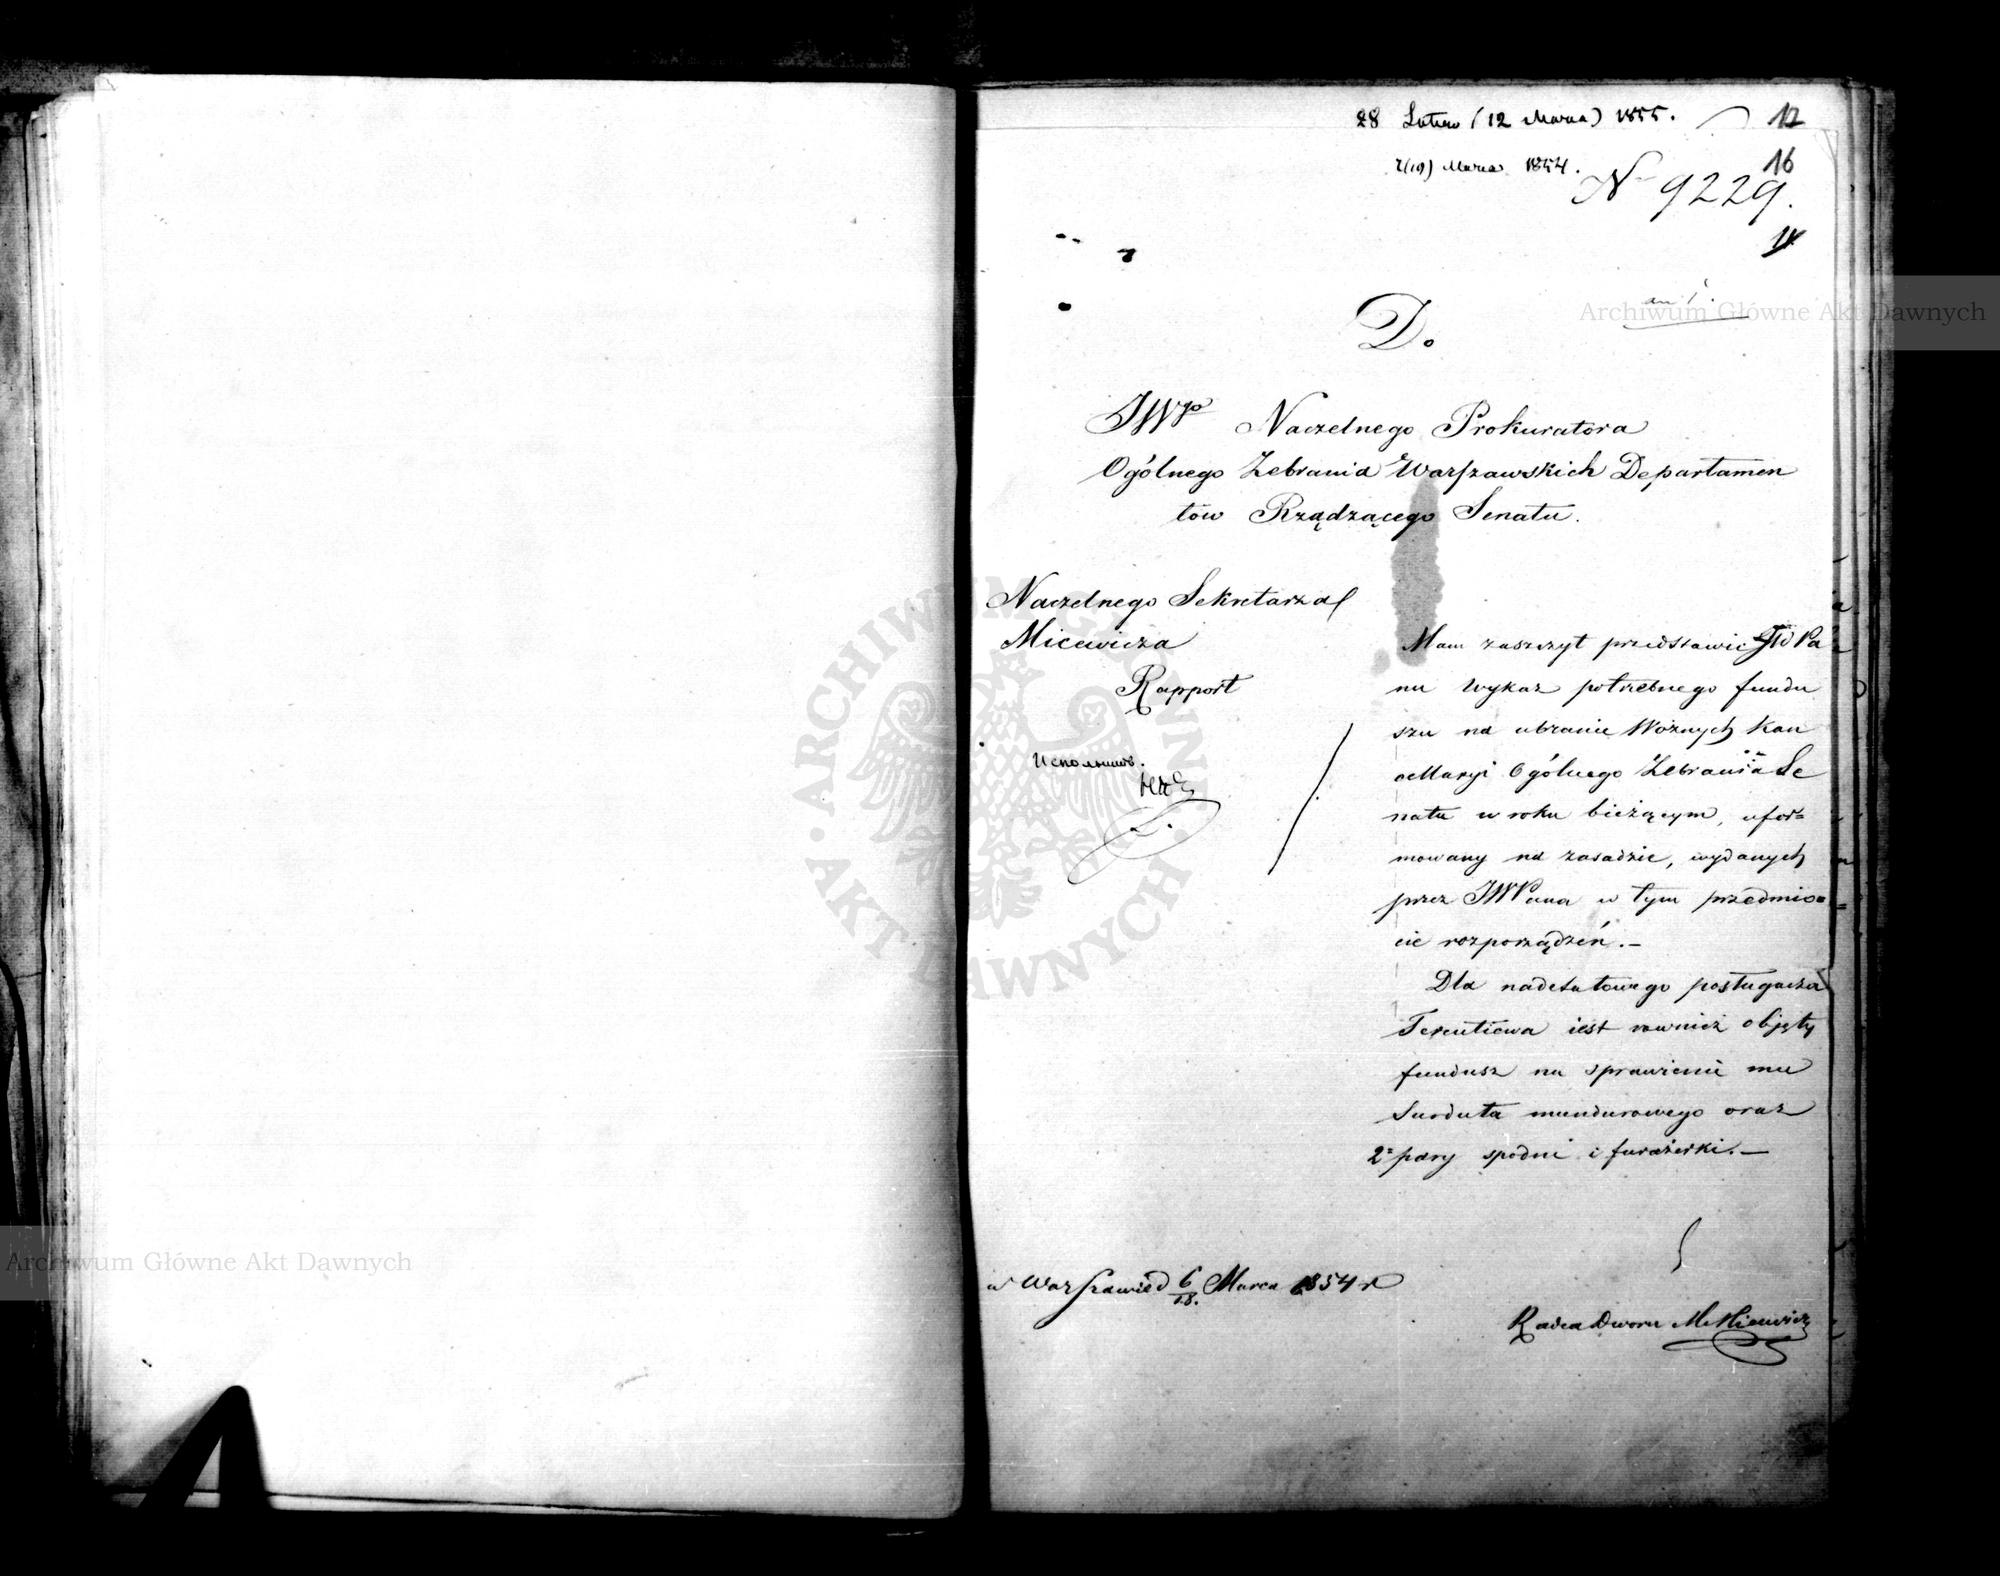 28 Lutego (12 Marca) 1855.
12
7(19) Marca 1854.
16
N 9229.
an 1.
Do
JWgo Naczelnego Prokuratora
Ogólnego Zebrania Warszawskich Departamen
tów Rządzącego Senatu.
Naczelnego Sekretarza
Micewicza
Rapport
Исполнить.
Mam zaszczyt przedstawić JW Pa
nu wykaz potrzebnego fundu
szu na ubranie Woźnych Kan
cellaryi Ogólnego Zebrania Se
natu w roku bieżącym, ufor=
mowany na zasadzie, wydanych
przez JWPana w tym przedmio=
cie rozporządzeń.—
Dla nadetatowego posługacza
Terentiewa iest rownież objęty
fundusz na sprawienie mu
Surduta mundurowego oraz
2= pary spodni i furażerki.—
w Warszawie d 6/18. Marca 1854 r
Radca Dworu Micewicz
Archiwum Główne Akt Dawnych
Archiwum Główne Akt Dawnych
ARCHIWUM GŁÓWNE AKT DAWNYCH